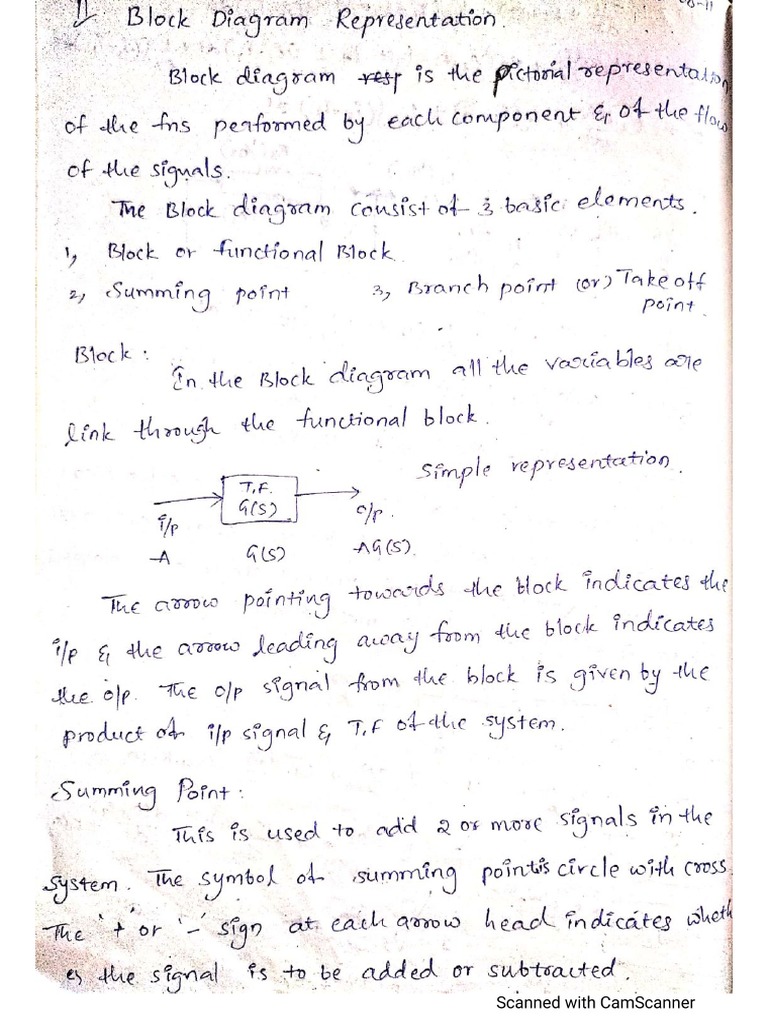 Block Diagram Representation.
Block diagram is the pictorial representation
of the fns performed by each component & of the flow
of the signals.
The Block diagram consist of 3 basic elements.
1, Block or functional Block
2, Summing point 3, Branch point (or) Take off
point.
Block :
In the Block diagram all the variables are
link through the functional block.
Simple representation.
T.F.
G(S)
i/p
o/p.
A G(S) AG(S).
The arrow pointing towards the block indicates the
i/p & the arrow leading away from the block indicates
the o/p. The o/p signal from the block is given by the
product of i/p signal & T.F of the system.
Summing Point :
This is used to add 2 or more signals in the
system. The symbol of summing point is circle with cross
The '+' or '-' sign at each arrow head indicates wheth
er the signal is to be added or subtracted.
Scanned with CamScanner